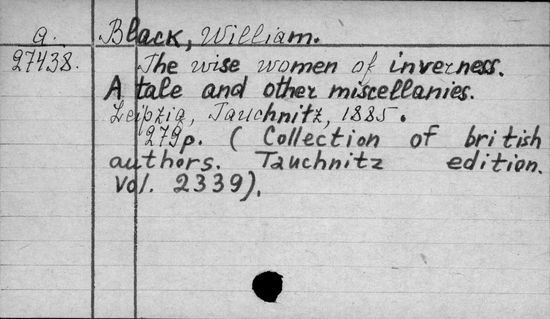 a. Black, William.
27438. The wise women of inverness.
A tale and other miscellanies.
Leipzig, Tauchnitz, 1885.
279p. ( Collection of british
authors. Tauchnitz edition.
Vol. 2339).